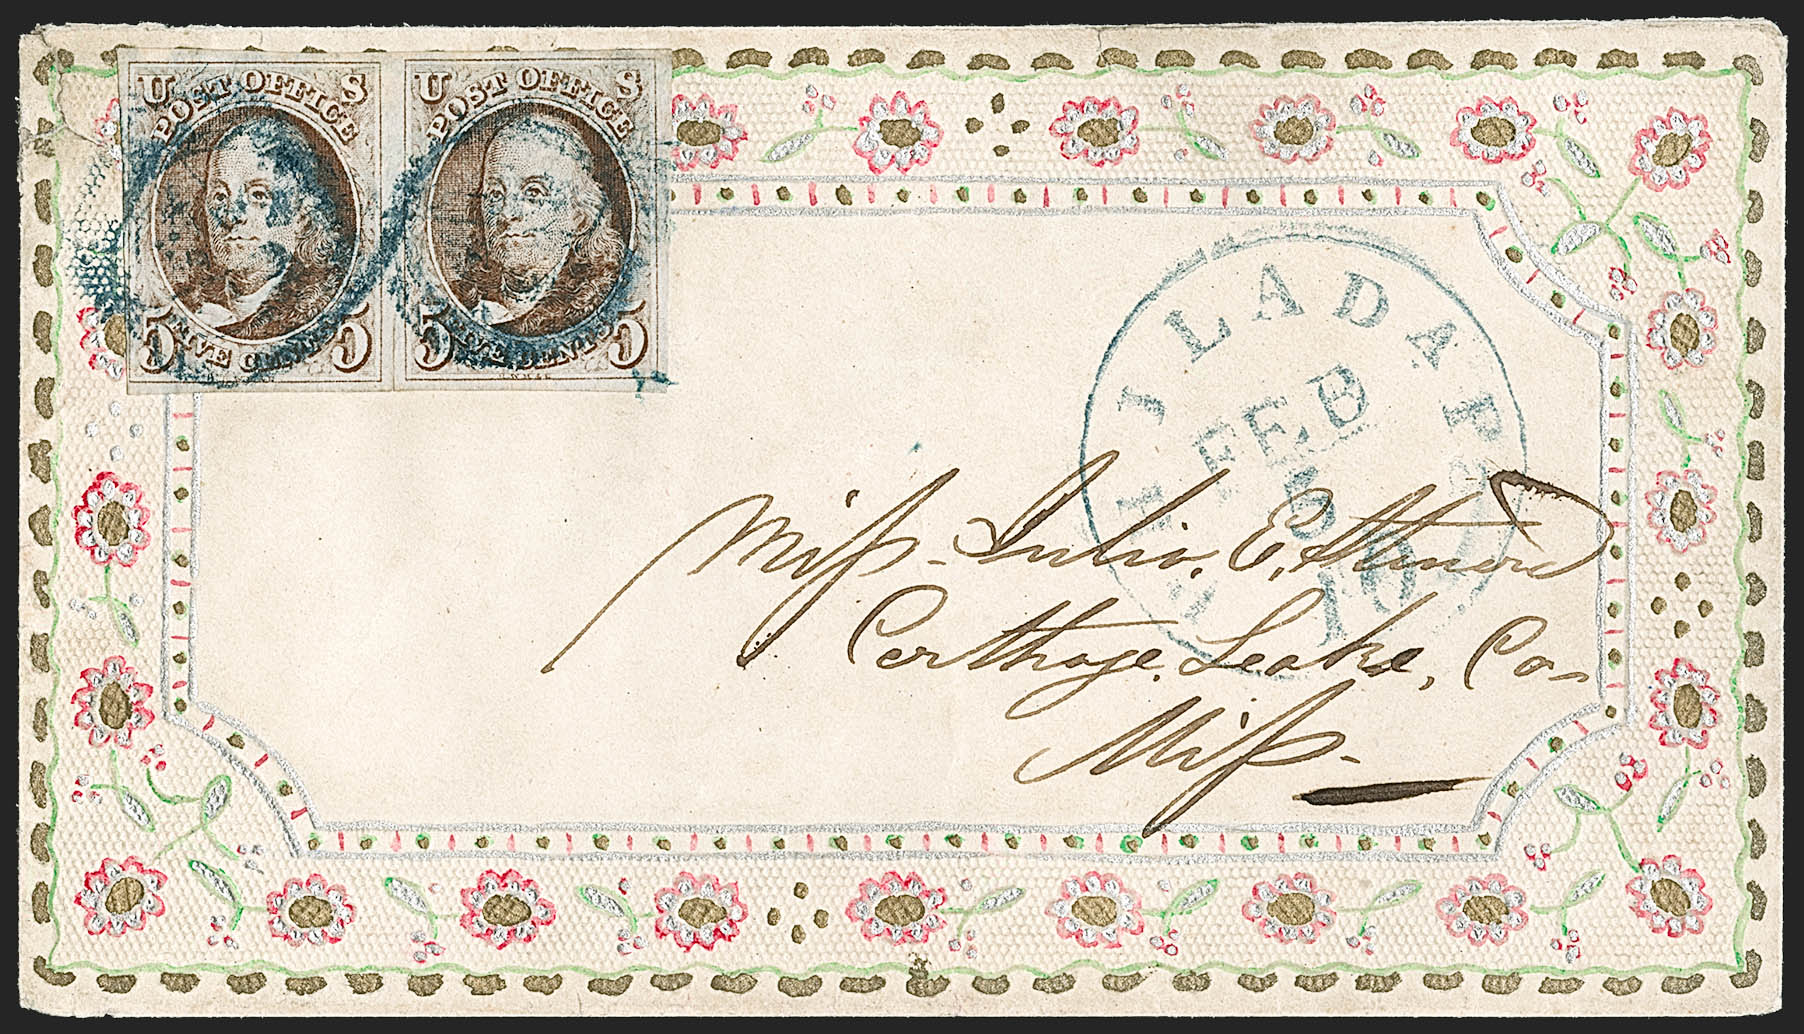 U S
POST OFFICE
5 FIVE CENTS 5
U S
POST OFFICE
5 FIVE CENTS 5
PHILADA Pa
FEB
5
10
Miss Julia, E,
Carthage, Leake, Co-
Miss-